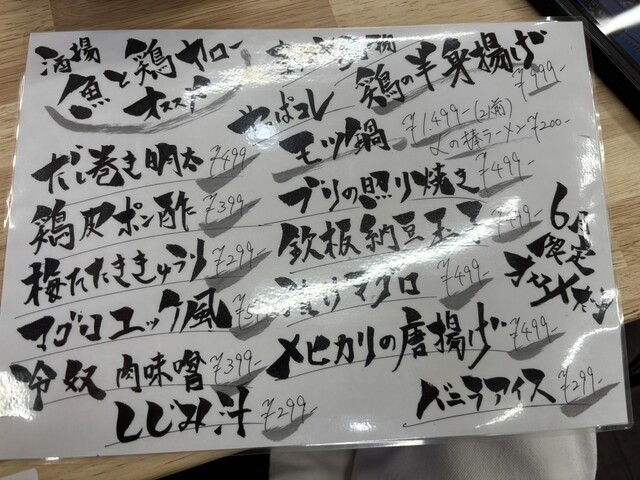 酒場
魚と鶏ヤロー
オススメ
やっぱコレ
鶏の半身揚げ ¥999-
モツ鍋 ¥1,499-(2人前)
〆の棒ラーメン ¥200-
だし巻き明太 ¥499-
ブリの照り焼き ¥499-
鶏皮ポン酢 ¥399-
鉄板納豆 ¥499-
6月限定
オススメ
梅たたききゅうり ¥299-
マグロ ¥499-
マグロユッケ風
メヒカリの唐揚げ ¥499-
冷奴 肉味噌 ¥399-
バニラアイス ¥299-
しじみ汁 ¥299-